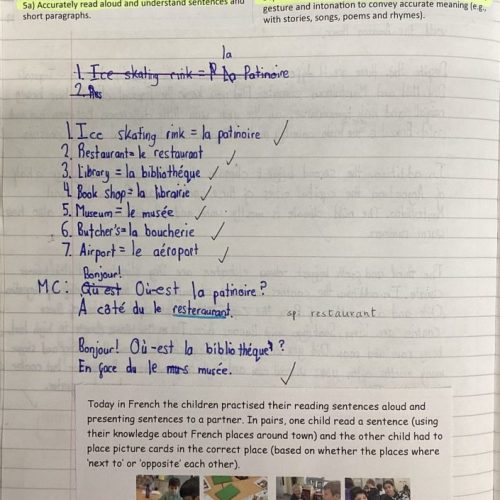 5a) Accurately read aloud and understand sentences and
short paragraphs.
gesture and intonation to convey accurate meaning (e.g.,
with stories, songs, poems and rhymes).
la
1. Ice skating rink = P La Patinoire
2. Res
1. Ice skating rink = la patinoire
2. Restaurant= le restaurant
3. Library = la bibliothéque
4. Book shop = la librairie
5. Museum = le musée
6. Butcher's = la boucherie
7. Airport = le aéroport
Bonjour!
MC: Où est Où-est la patinoire?
A caté du le resteraurant.
sp restaurant
Bonjour! Où-est la bibliothéque?
En face du le mus musée.
Today in French the children practised their reading sentences aloud and
presenting sentences to a partner. In pairs, one child read a sentence (using
their knowledge about French places around town) and the other child had to
place picture cards in the correct place (based on whether the places where
'next to' or 'opposite' each other).